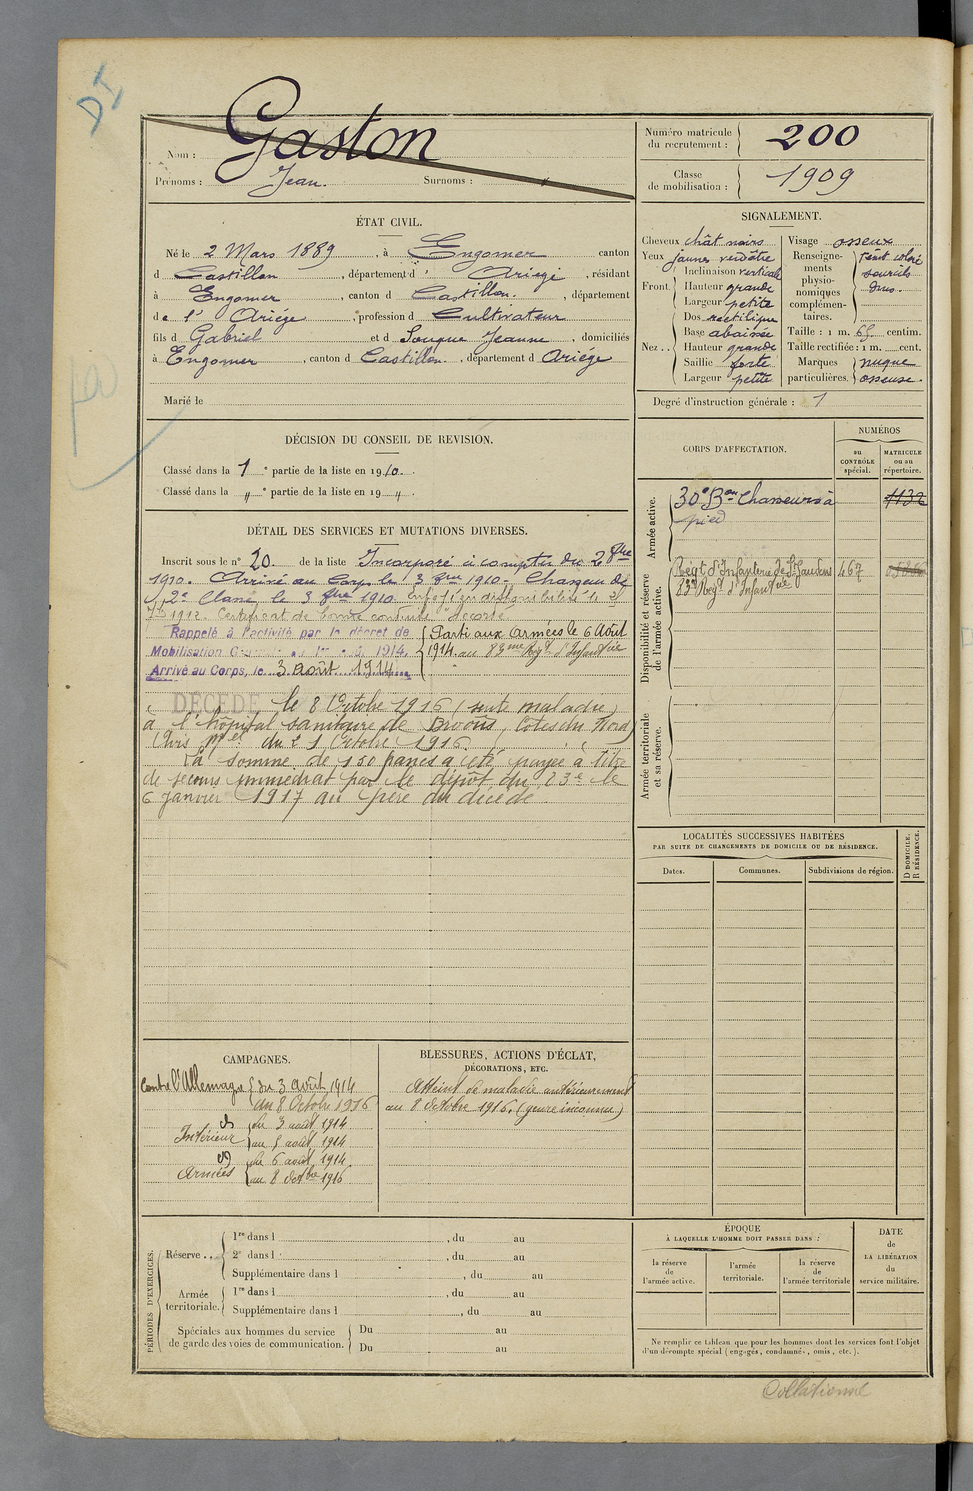 DI
Nom : Gaston
Prénoms : Jean. Surnoms :
Numéro matricule du recrutement : 200
Classe de mobilisation : 1909
ÉTAT CIVIL.
Né le 2 Mars 1889, à Engomer canton
d Castillon, département d' Ariège, résidant
à Engomer, canton d Castillon., département
de l' Ariége, profession d Cultivateur
fils d Gabriel et d Souque Jeanne, domiciliés
à Engomer, canton d Castillon, département d Ariége
Marié le
SIGNALEMENT.
Cheveux chât noirs
Yeux jaunes verdâtre
Front. Inclinaison verticale
Hauteur grande
Largeur petite
Nez . . Dos rectiligne
Base abaissée
Hauteur grande
Saillie forte
Largeur petite
Visage osseux
Renseignements physionomiques complémentaires. teint coloré sourcils
Taille : 1 m. 65 centim.
Taille rectifiée : 1 m. cent.
Marques particulières. nuque osseuse.
Degré d'instruction générale : 1
DÉCISION DU CONSEIL DE REVISION.
Classé dans la 1e partie de la liste en 1910.
Classé dans la " e partie de la liste en 19 "
CORPS D'AFFECTATION.
NUMÉROS
au CONTRÔLE spécial.
MATRICULE ou au répertoire.
Armée active.
30e Bon Chasseurs à pied 1132
Disponibilité et réserve de l'armée active.
Regt d'Infanterie de St Gaudens 467
23e Regt d'Infanterie
Armée territoriale et sa réserve.
DÉTAIL DES SERVICES ET MUTATIONS DIVERSES.
Inscrit sous le n° 20. de la liste Incorporé à compter du 2 8bre
1910. Arrivé au Corps le 3 8bre 1910. Chasseur de
2e Classe le 3 8bre 1910. Envoyé en disponibilité le
1912. Certificat de bonne conduite "Accordé"
Rappelé à l'activité par le décret de
Mobilisation 1914.
Arrivé au Corps, le 3 août 1914
Parti aux armées le 6 Août
1914 au 83me Regt d'Infanterie
DÉCÉDÉ le 8 Octobre 1916 (suite maladie)
à l'hôpital sanitaire de Broons, Côtes du Nord
Avis Mel du 21 Octobre 1916.
La somme de 150 francs a été payée à titre
de secours immédiat par le dépôt du 23e le
6 janvier 1917 au père du décédé
LOCALITÉS SUCCESSIVES HABITÉES
PAR SUITE DE CHANGEMENTS DE DOMICILE OU DE RÉSIDENCE.
Dates. Communes. Subdivisions de région. D DOMICILE. R RÉSIDENCE.
CAMPAGNES.
Contre l'Allemagne du 3 août 1914
au 8 Octobre 1916
Intérieur du 3 août 1914
au 5 août 1914
Armées du 6 août 1914
au 8 octbre 1916
BLESSURES, ACTIONS D'ÉCLAT,
DÉCORATIONS, ETC.
Atteint de maladie antérieurement
au 8 octobre 1916. (genre inconnu)
PÉRIODES D'EXERCICES.
Réserve . . 1re dans l , du au
2e dans l , du au
Supplémentaire dans l , du au
Armée territoriale. 1re dans l , du au
Supplémentaire dans l , du au
Spéciales aux hommes du service de garde des voies de communication. Du au
Du au
ÉPOQUE
À LAQUELLE L'HOMME DOIT PASSER DANS :
la réserve de l'armée active.
l'armée territoriale.
la réserve de l'armée territoriale
DATE de LA LIBÉRATION du service militaire.
Ne remplir ce tableau que pour les hommes dont les services font l'objet
d'un décompte spécial (engagés, condamnés, omis, etc.).
Collationné